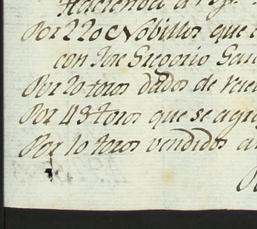 Hacienda a
Por 220 Nobillos que
con Jose Gregorio Gar
Por 20 toros dados de
Por 49 toros que se agre
Por 10 toros vendidos a